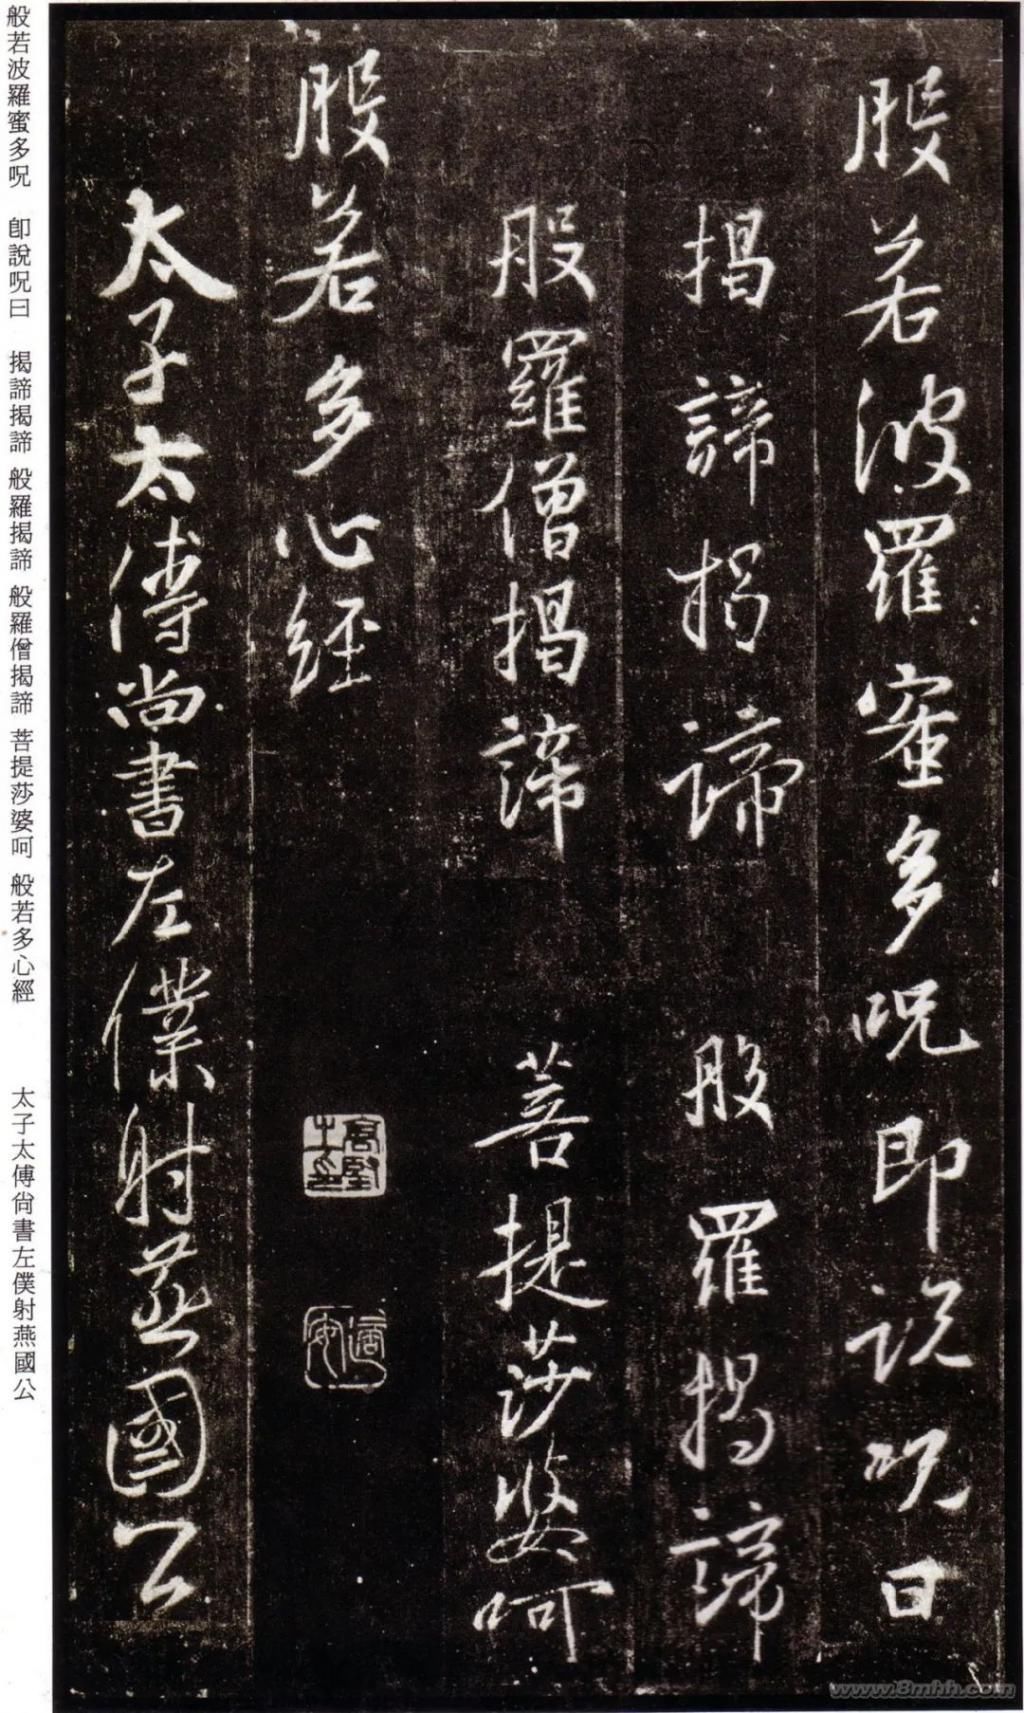 般若波羅蜜多呪即說呪曰
揭諦揭諦 般羅揭諦
般羅僧揭諦 菩提莎婆呵
般若多心經
太子太傅尚書左僕射燕國公
般若波羅蜜多呪 卽說呪曰 揭諦揭諦 般羅揭諦 般羅僧揭諦 菩提莎婆呵 般若多心經 太子太傅尙書左僕射燕國公
www.8mhh.com